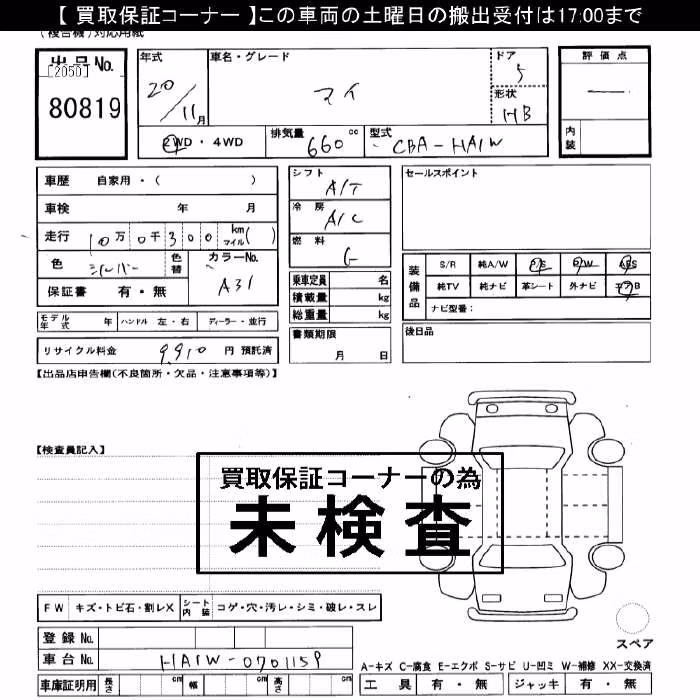 【 買取保証コーナー 】この車両の土曜日の搬出受付は17:00まで
(複合機)対応用紙
出品No.
[2050]
80819
年式
20/11月
車名・グレード
マイ
ドア
5
形状
HB
評価点
—
内装
2WD・4WD
排気量
660cc
型式
CBA-HA1W
車歴 自家用・( )
車検 年 月
走行 10万0千300 km マイル( )
色 シルバー
色替
カラーNo.
A31
保証書 有・無
シフト
A/T
冷房
A/C
燃料
G
乗車定員 名
積載量 kg
総重量 kg
書類期限
月 日
セールスポイント
装備品
S/R 純A/W P/S P/W ABS
純TV 純ナビ 革シート 外ナビ エアB
ナビ型番:
後日品
モデル年式 年 ハンドル 左・右 ディーラー・並行
リサイクル料金 9,910 円 預託済
【出品店申告欄(不良箇所・欠品・注意事項等)】
【検査員記入】
買取保証コーナーの為
未検査
FW キズ・トビ石・割レX
シート内装 コゲ・穴・汚レ・シミ・破レ・スレ
登録No.
車台No. HA1W-0701159
車庫証明用 長さ cm 幅 cm 高さ cm
スペア
A-キズ C-腐食 E-エクボ S-サビ U-凹ミ W-補修 XX-交換済
工具 有・無 ジャッキ 有・無